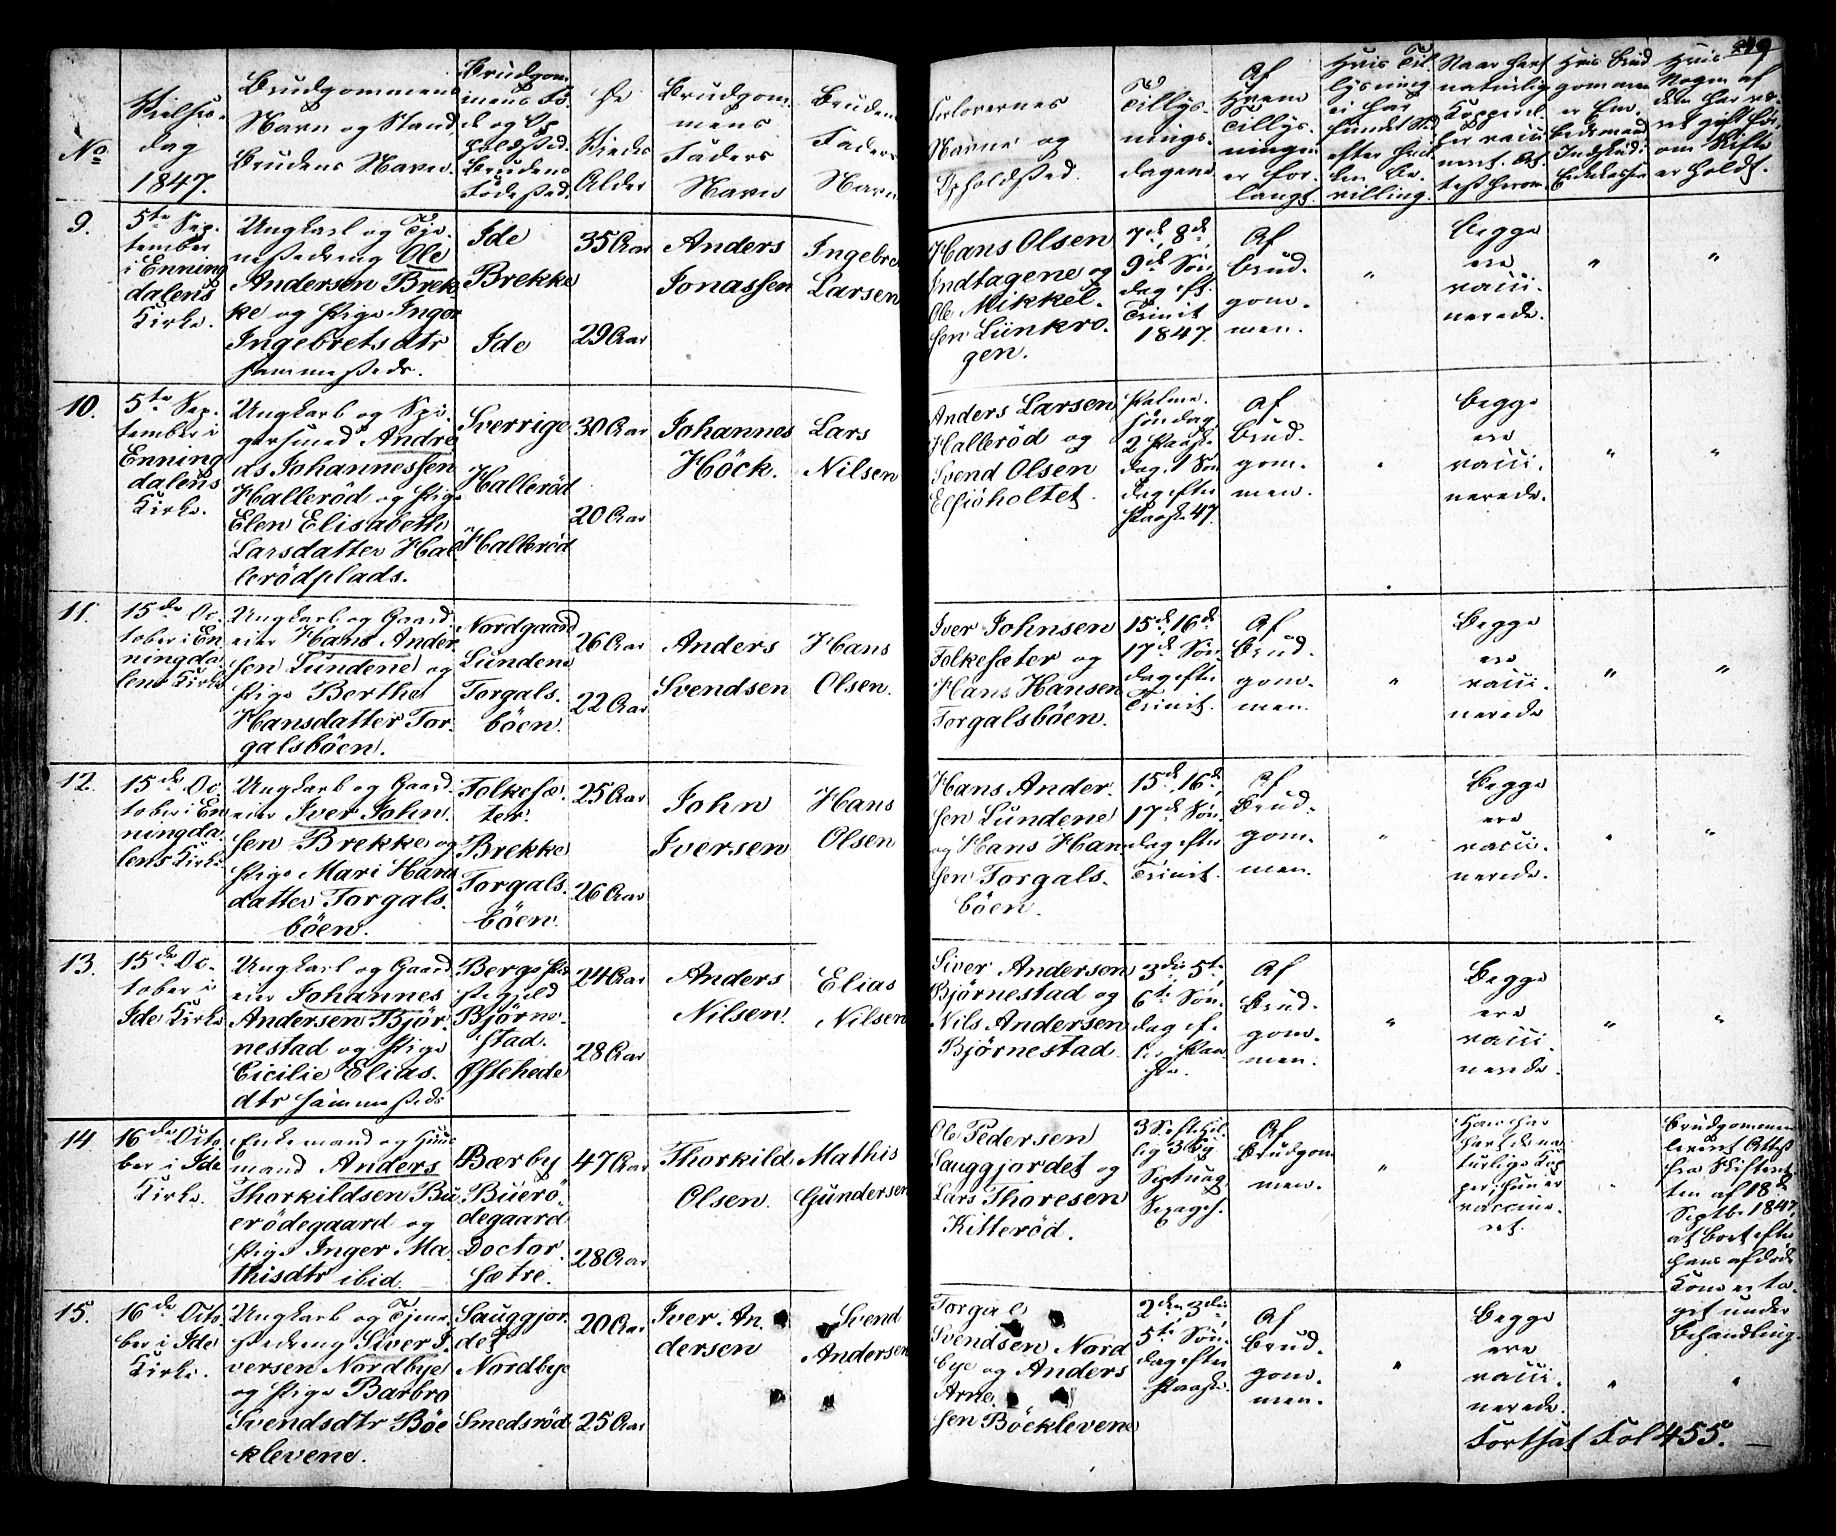 249
No
Vielses-
dag
1847.
Brudgommens
Navn og Stand
Brudens Navn.
Brudgom-
mens Fø-
de og Op-
holdsted.
Brudens
Fødested.
De
Viedes
Alder
Brudgom-
mens
Faders
Navn
Brudens
Faders
Navn
Forlovernes
Navne og
Opholdsted.
Tillys-
nings-
dagene
Af
Hvem
Tillys-
ningen
er for-
langt.
Hvis Til-
lysning
ei har
fundet Sted
efter hvil-
ken Be-
villing.
Naar havt
naturlig
Kopper el-
ler vacci-
neret. At-
test herom
Hvis Brud-
gommen
er Enkemand
Hvis
Nogen af
dem har væ-
ret gift før,
om Skifte
er holdt.
9.
5te Sep-
tember
i Enning
dalens
Kirke.
Ungkarl og Tje-
nestedreng Ole
Andersen Brek-
ke og Pige Inger
Ingebretsdtr
sammesteds.
Ide
Brekke
Ide
35 Aar
29 Aar
Anders
Jonassen
Ingebret
Larsen
Hans Olsen
Indtagene og
Ole Mikkel-
sen Liinkro-
gen.
7de, 8de,
9de Søn-
dag eft.
Trinit
1847.
Af
Brud-
gom-
men.
"
Begge
ere
vacci-
nerede.
"
"
10.
5te Sep-
tember i
Enning
dalens
Kirke.
Ungkarl og Spi-
gersmed Andre-
as Johannessen
Hallerød og Pige
Elen Elisabeth
Larsdatter Hal-
lerødplads.
Sverrige
Hallerød
Hallerød
30 Aar
20 Aar
Johannes
Höck.
Lars
Nilsen
Anders Larsen
Hallerød og
Svend Olsen
Elsjøholtet.
Palme-
søndag
2 Paaske-
dag, 1 Søn-
dag efter
Paaske 47.
Af
Brud-
gom-
men.
"
Begge
ere
vacci-
nerede.
"
"
11.
15de Oc-
tober i En
ningda-
lens Kirke
Ungkarl og Gaard-
eier Hans Ander-
sen Lundene og
Pige Berthe
Hansdatter Tor-
galsböen.
Nordgaard
Lundene
Torgals-
böen.
26 Aar
22 Aar
Anders
Svendsen
Hans
Olsen.
Iver Johnsen
Folkesæter og
Hans Hansen
Torgalsböen.
15de, 16de
17de Søn-
dag efter
Trinit.
Af
Brud-
gom-
men.
"
Begge
ere
vacci-
nerede
"
"
12.
15de Oc-
tober i En
ningda-
lens Kirke
Ungkarl og Gaard-
eier Iver John-
sen Brekke og
Pige Mari Hans
datter Torgals-
böen.
Folkesæ-
ter.
Brekke
Torgals-
böen.
25 Aar
26 Aar
John
Iversen
Hans
Olsen
Hans Ander-
sen Lundene
og Hans Han
sen Torgals-
böen.
15de, 16de,
17de Søn-
dag efter
Trinit.
Af
Brud-
gom-
men.
"
Begge
ere
vacci-
nerede.
"
"
13.
15de Oc-
tober i
Ide Kirke
Ungkarl og Gaard-
eier Johannes
Andersen Bjør-
nestad og Pige
Cicilie Elias-
dtr sammesteds
Bergs Præ-
stegjeld
Bjørne-
stad.
Østehede
24 Aar
28 Aar
Anders
Nilsen.
Elias
Nilsen
Siver Andersen
Bjørnestad og
Nils Andersen
Bjørnestad
3die, 5te,
6te Søn-
dag ef-
ter Paa-
ske.
Af
Brud-
gom-
men.
"
Begge
ere
vacci-
nerede.
"
"
14
16de Octo-
ber i Ide
Kirke.
Enkemand og Huus-
mand Anders
Thorkildsen Bu
erødegaard og
Pige Inger Ma-
thisdtr ibid.
Bærby
Buerø-
degaard
Doctor-
sætre.
47 Aar
28 Aar
Thorkild
Olsen.
Mathis
Gundersen
Ole Pedersen
Sauggjordet og
Lars Thoresen
Kitterød.
Septuag
Sexages.
Af
Brudgom
men.
"
Han har
havt de na-
turlige Kop-
per, hun er
vaccine-
ret.
"
Brudgommen
leveret Attest
fra Skifteret-
ten af 18de
Septbr 1847,
at Boet efter
hans afdøde
Kone er ta-
get under
Behandling.
15.
16de Octo-
ber i Ide
Kirke.
Ungkarl og Tjene-
stedreng Siver I-
versen Nordbye
og Pige Barbro
Svendsdtr Böe
klevene.
Sauggjor-
det
Nordbye
Smedsrød
20 Aar
25 Aar
Iver An-
dersen
Svend
Andersen
Torger
Svendsen Nord
bye og Anders
Arne-
sen Böcklevene
2den, 3die,
5te Søn-
dag efter
Paaske.
Af
Brud-
gom-
men.
"
Begge
ere
vacci-
nerede.
"
"
Fortsat Fol 455.